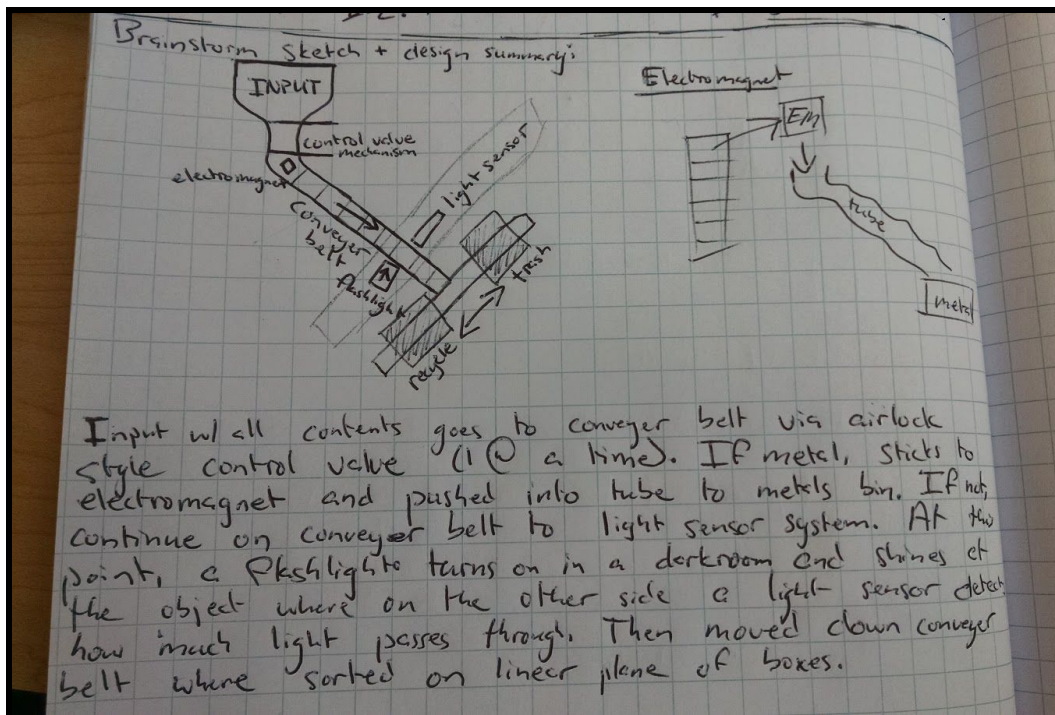 Brainstorm sketch + design summary:
INPUT
control valve
mechanism
electromagnet
conveyer
belt
flashlight
light sensor
trash
recycle
Electromagnet
EM
tube
metal
Input w/ all contents goes to conveyer belt via airlock
style control valve (1 @ a time). If metal, sticks to
electromagnet and pushed into tube to metals bin. If not,
continue on conveyer belt to light sensor system. At this
point, a flashlight turns on in a darkroom and shines at
the object where on the other side a light sensor detects
how much light passes through. Then moved down conveyer
belt where sorted on linear plane of boxes.